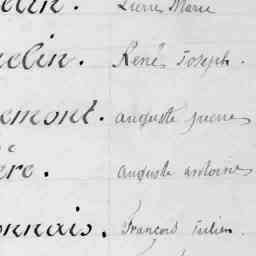 Pierre Marie
elin. René Joseph.
emont. auguste pierre
ère. auguste antoine
onnais. François Julien.